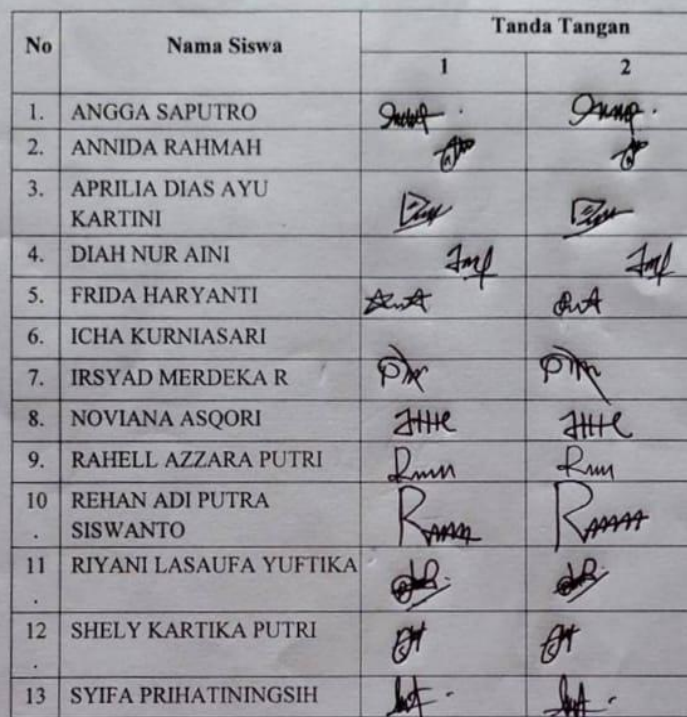 No Nama Siswa Tanda Tangan
1 2
1. ANGGA SAPUTRO
2. ANNIDA RAHMAH
3. APRILIA DIAS AYU
KARTINI
4. DIAH NUR AINI
5. FRIDA HARYANTI
6. ICHA KURNIASARI
7. IRSYAD MERDEKA R
8. NOVIANA ASQORI
9. RAHELL AZZARA PUTRI
10 REHAN ADI PUTRA
. SISWANTO
11 RIYANI LASAUFA YUFTIKA
.
12 SHELY KARTIKA PUTRI
.
13 SYIFA PRIHATININGSIH